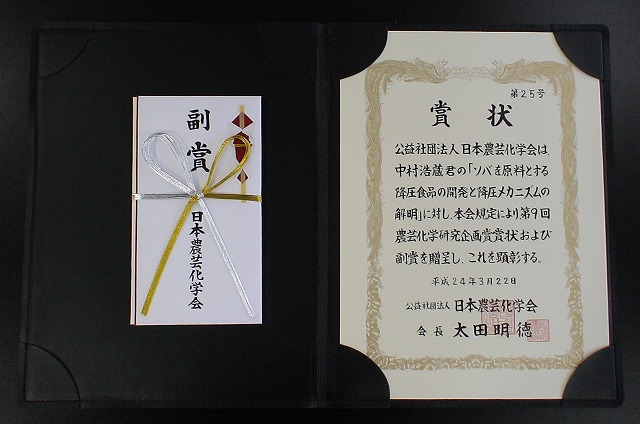 副賞
日本農芸化学会
第25号
賞状
公益社団法人日本農芸化学会は、
中村浩蔵君の「ソバを原料とする
降圧食品の開発と降圧メカニズムの
解明」に対し、本会規定により第9回
農芸化学研究企画賞賞状および
副賞を贈呈し、これを顕彰する。
平成24年3月22日
公益社団法人 日本農芸化学会
会長 太田明徳